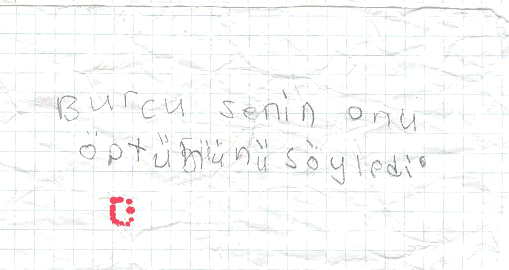 Burcu senin onu
öptüğünü söyledi.